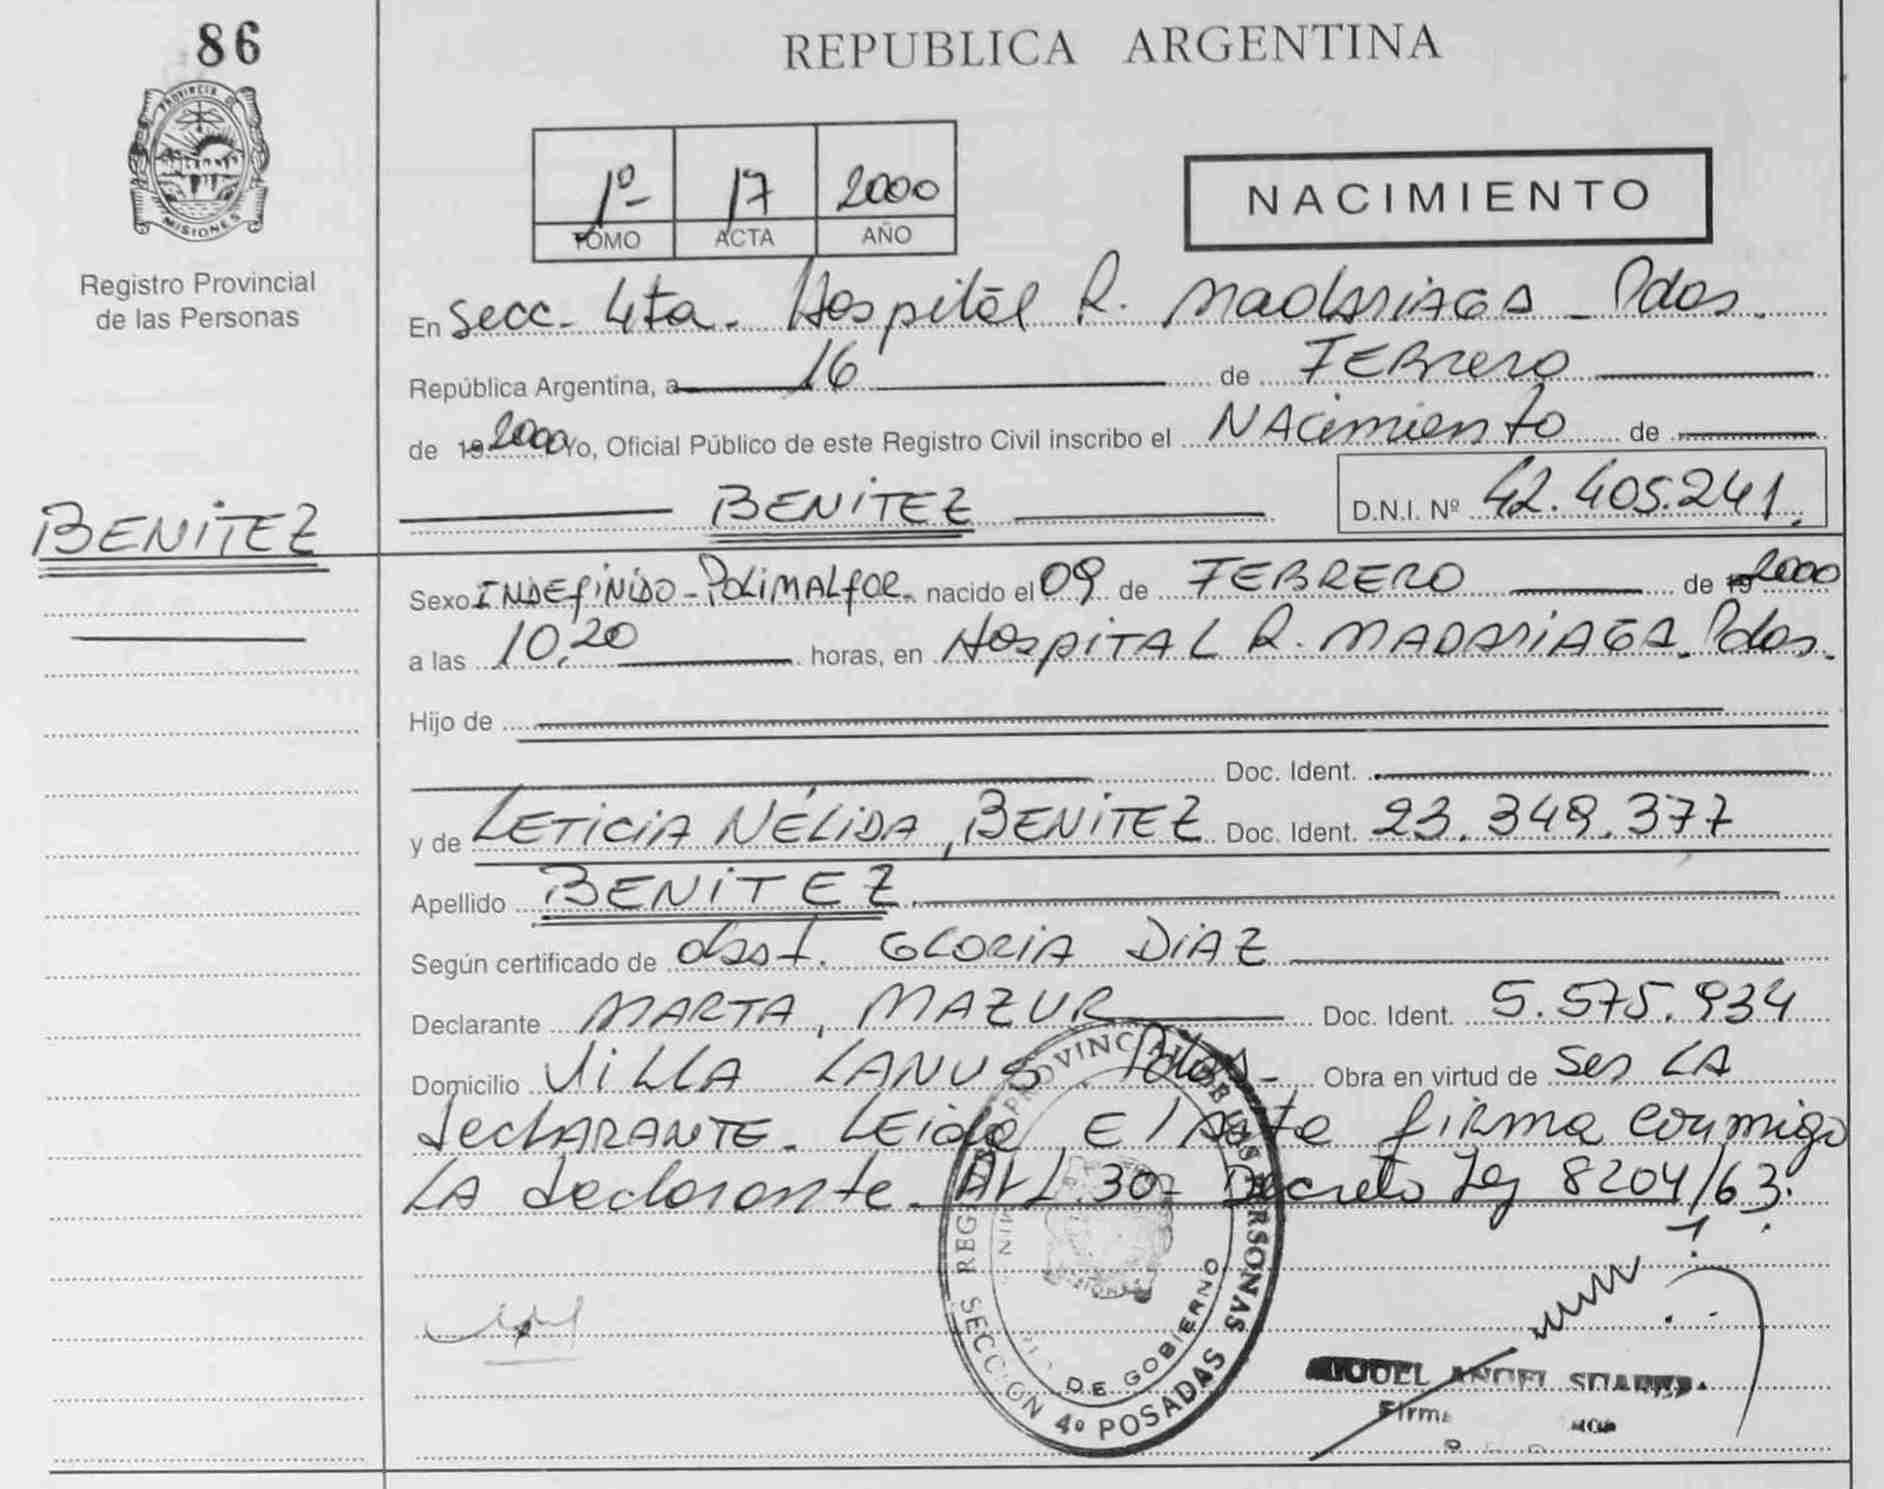 86
REPUBLICA ARGENTINA
PROVINCIA DE
MISIONES
Registro Provincial
de las Personas
1º- 17 2000
TOMO ACTA AÑO
NACIMIENTO
En Secc. 4ta. Hospital R. MADARIAGA - Pdas.
República Argentina, a 16 de FEBrero
de 19 2000 Yo, Oficial Público de este Registro Civil inscribo el NAcimiento de
BENITEZ D.N.I. Nº 42.405.241.
BENITEZ
Sexo INDEFINIDO - POLIMALFOR. nacido el 09 de FEBRERO de 19 2000
a las 10,20 horas, en HOSPITAL R. MADARIAGA - Pdas.
Hijo de
Doc. Ident.
y de LETICIA NÉLIDA, BENITEZ Doc. Ident. 23.349.377
Apellido BENITEZ
Según certificado de obst. GLORIA DIAZ
Declarante MARTA, MAZUR Doc. Ident. 5.575.934
Domicilio VILLA LANUS Pdas - Obra en virtud de Ser LA
declARANTE. LEida El Acta firma conmigo
LA declarante. Art. 30 - Decreto Ley 8204/63.
REG PROVINCIAL DE LAS PERSONAS
DE GOBIERNO
SECCION 4º POSADAS
MIGUEL ANGEL SUAREZ
Firma